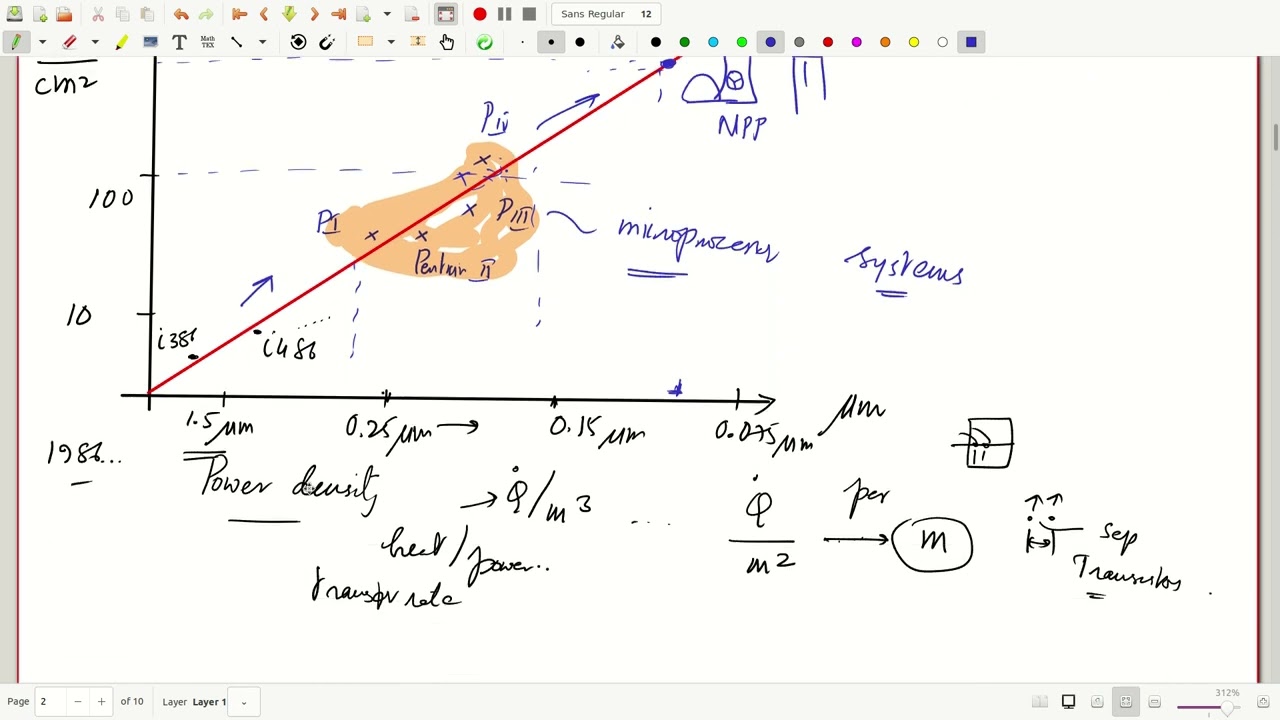 Sans Regular 12
T Math TEX
cm2
P IV
NPP
100
P I
P III
Pentium II
microprocessor
systems
10
i386
i486
1.5 μm
0.25 μm
0.15 μm
0.075 μm
μm
1986...
Power density
Q̇/m3 ....
Q̇
m2
per
m
sep
Transistors
heat/power..
transfer rate
Page 2 of 10 Layer Layer 1
312%